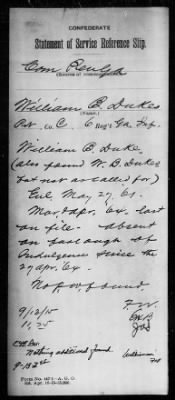 CONFEDERATE
Statement of Service Reference Slip.
Com Pen Ga
William B. Dukes
(Name.)
Pvt, Co. C 6 Reg't Ga. Inf.
William B. Duke
(also found W. B. Dukes
but not as called for)
Enl. May 27/61.
Mar & Apr. 64. last
on file - absent
on furlough of
Indulgence since the
27 Apr. 64.
No p of w found.
9/12/15
11.25
Nothing additional found.